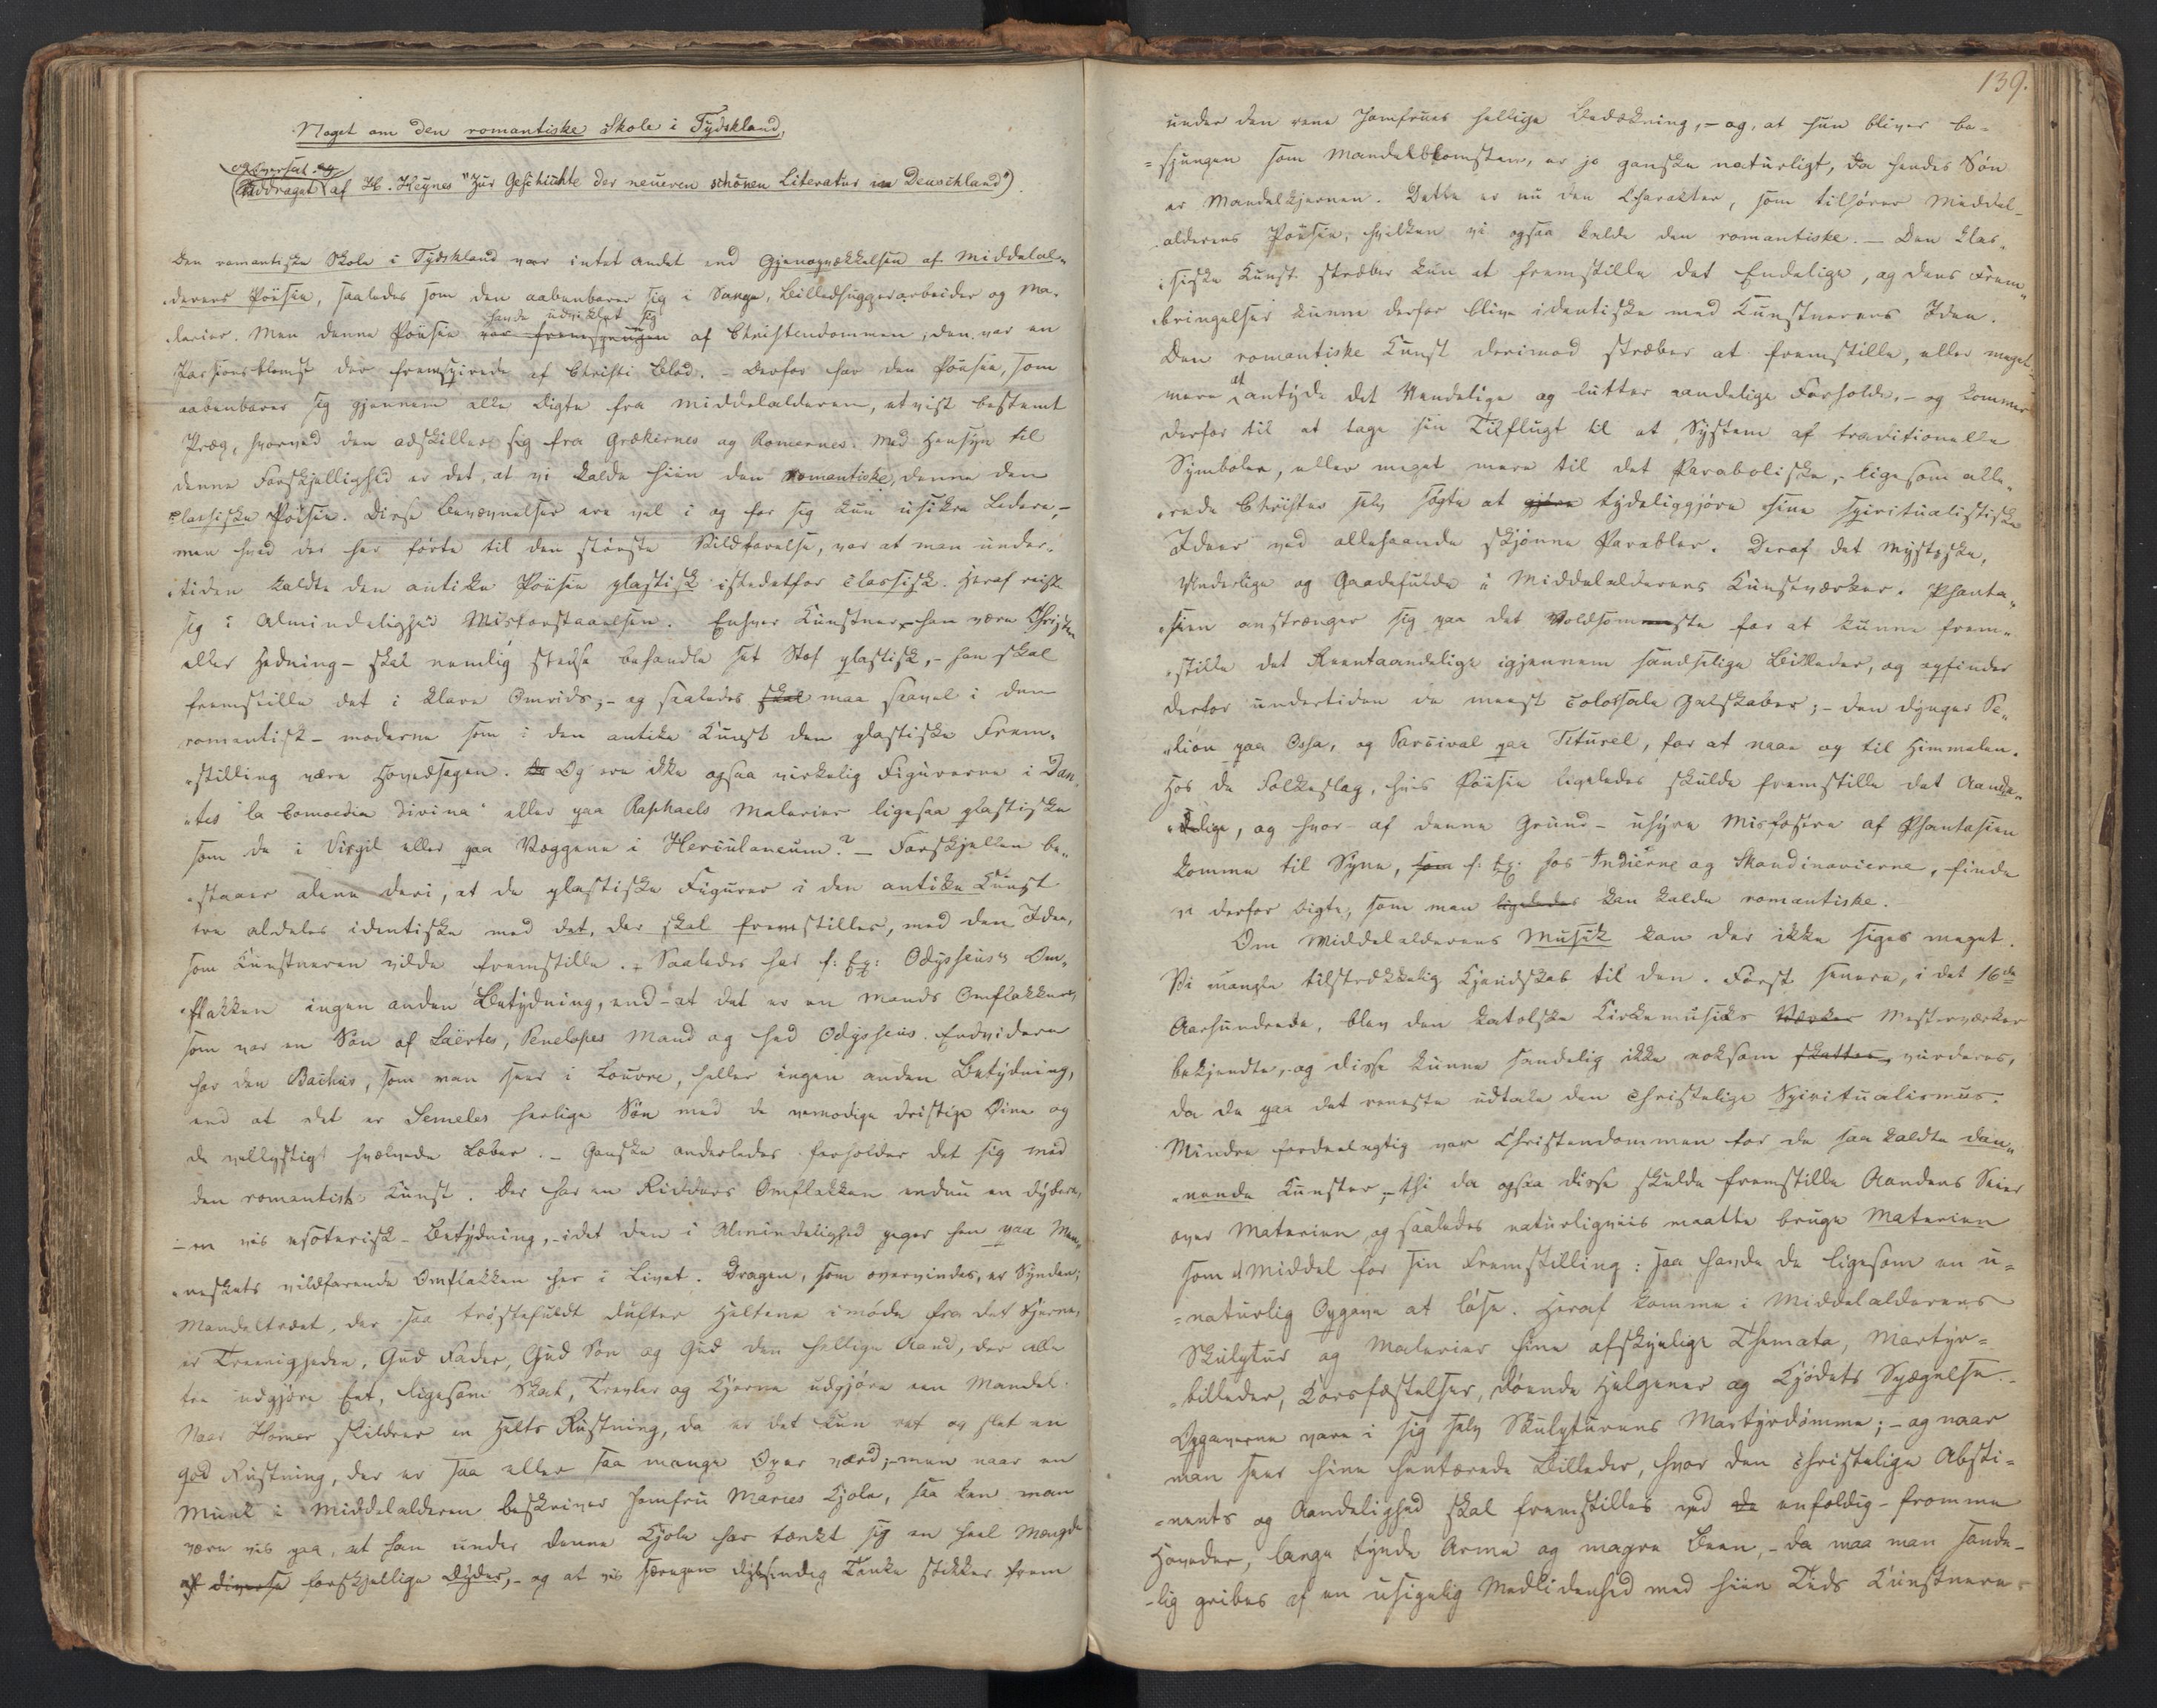 Noget om den romantiske Skole i Tydskland,
oversat og
(uddraget af H. Heynes "Zur Geschichte der neueren schönen Literatur in Deuschland").
Den romantiske Skole i Tydskland var intet andet end Gjenopvækkelsen af Middelal„
„derens Poësie, saaledes som den aabenbarer sig i Sange, Billedhuggerarbeider og Ma„
„lerier. Men denne Poësie havde udviklet sig af Christendommen, den var en
Passionsblomst der fremspirede af Christi Blod. – Derfor har den Poësie, som
aabenbarer sig gjennem alle Digte fra Middelalderen, et vist bestemt
Præg, hvorved den adskiller sig fra Grækernes og Romernes. Med Hensyn til
denne Forskjellighed er det, at vi kalde hiin den romantiske, denne den
classiske Poësie. Disse Benævnelser ere vel i og for sig kun usikre Ledere, –
men hvad der her førte til den største Vildfarelse, var at man under„
„tiden kaldte den antike Poësie plastisk istedetfor classisk. Heraf reiste
sig i Almindelighed Misforstaaelsen. Enhver Kunstner – han være Christen
eller Hedning – skal nemlig stedse behandle sit Stof plastisk, – han skal
fremstille det i klare Omrids; – og saaledes skal maa saavel i den
romantisk-moderne som i den antike Kunst den plastiske Frem„
„stilling være Hovedsagen. Og ere ikke ogsaa virkelig Figurerne i Dan„
„tes "la Comoedia divina" eller paa Raphaels Malerier ligesaa plastiske
som de i Virgil eller paa Væggene i Herculaneum? – Forskjellen be„
„staaer alene deri, at de plastiske Figurer i den antike Kunst
ere aldeles identiske med det, der skal fremstilles, med den Idee,
som Kunstneren vilde fremstille. – Saaledes har f: Ex: Odysseus's Om„
„flakken ingen anden Betydning, end – at det er en Mands Omflakken,
som var en Søn af Laërtes, Penelopes Mand og hed Odysseus. Endvidere
har den Bachus, som man seer i Louvre, heller ingen anden Betydning,
end at det er Semeles herlige Søn med de vemodige dristige Øine og
de vellystigt hvælvede Læber. – Ganske anderledes forholder det sig med
den romantiske Kunst. Der har en Ridders Omflakken endnu en dybere,
– en vis esoterisk – Betydning, – idet den i Almindelighed peger hen paa Men„
„neskets vildfarende Omflakken her i Livet. Dragen, som overvindes, er Synden;
Mandeltræet, der saa trøstefuldt dufter Heltene imøde fra det Fjerne,
er Treenigheden, Gud Fader, Gud Søn og Gud den hellige Aand, der alle
tre udgjøre Eet, ligesom Skal, Trevler og Kjerne udgjøre een Mandel.
Naar Homer skildrer en Helts Rustning, da er det kun ret og slet en
god Rustning, der er saa eller saa mange Øxer værd; – men naar en
Munk i Middelalderen beskriver Jomfru Maries Kjole, saa kan man
være vis paa, at han under denne Kjole har tænkt sig en heel Mængde
af diverse forskjellige Dyder, – og at en særegen dybsindig Tanke stikker frem
139.
under den rene Jomfrues hellige Bedækning, – og, at hun bliver be=
=sjungen som Mandelblomsten, er jo ganske naturligt, da hendes Søn
er Mandelkjernen. Dette er nu den Charakter, som tilhører Middel„
„alderens Poësie, hvilken vi ogsaa kalde den romantiske. – Den clas„
„siske Kunst stræber kun at fremstille det Endelige, og dens Frem„
„bringelser kunne derfor blive identiske med Kunstnerens Idee.
Den romantiske Kunst derimod stræber at fremstille, eller meget
mere at antyde det Uendelige og lutter aandelige Forholde, – og kommer
derfor til at tage sin Tilflugt til et System af traditionelle
Symboler, eller meget mere til det Paraboliske, – ligesom alle„
„rede Christus selv søgte at gjøre tydeliggjøre sine spiritualistiske
Ideer ved allehaande skjønne Parabler. Deraf det Mystiske,
Underlige og Gaadefulde i Middelalderens Kunstværker. Phanta„
„sien anstrænger sig paa det Voldsomste for at kunne frem„
„stille det Reentaandelige igjennem sandselige Billeder, og opfinder
derfor undertiden de meest colossale Galskaber; – den dynger Pe„
„lion paa Ossa, og Parcival paa Titurel, for at naae op til Himmelen.
Hos de Folkeslag, hvis Poësie ligeledes skulde fremstille det Aande„
„lige, og hvor – af denne Grund – uhyre Misfostre af Phantasien
komme til Syne, som f: Ex: hos Indierne og Skandinavierne, finde
vi derfor Digte, som man ligeledes kan kalde romantiske.
Om Middelalderens Musik kan der ikke siges meget.
Vi mangle tilstrækkelig Kjendskab til den. Først senere, i det 16de
Aarhundrede, blev den katolske Kirkemusiks Værker Mesterværker
bekjendte, og disse kunne sandelig ikke noksom skattes, vurderes,
da de paa det reneste udtale den christelige Spiritualismus.
Mindre fordeelagtig var Christendommen for de saa kaldte dan„
„nende Kunster, – thi da ogsaa disse skulde fremstille Aandens Seier
over Materien, og saaledes naturligviis maatte bruge Materien
som Middel for sin Fremstilling: saa havde de ligesom en u=
=naturlig Opgave at løse. Heraf komme i Middelalderens
Skulptur og Malerier hine afskyelige Themata, Martyr=
=billeder, Korsfæstelser, døende Helgener og Kjødets Spægelse.
Opgaverne vare i sig selv Skulpturens Martyrdømme; – og naar
man seer hine fortærede Billeder, hvor den christelige Absti=
=nents og Aandelighed skal fremstilles ved de eenfoldig-fromme
Hoveder, lange tynde Arme og magre Been, – da maa man sande-
-lig gribes af en usigelig Medlidenhed med hiin Tids Kunstnere